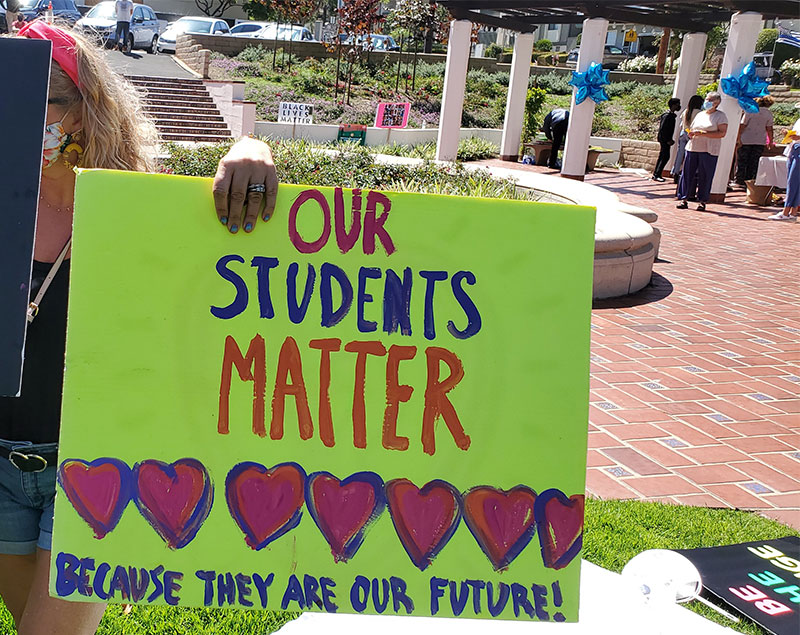 BLACK
LIVES
MATTER
OUR
STUDENTS
MATTER
BECAUSE THEY ARE OUR FUTURE!
BE
THE